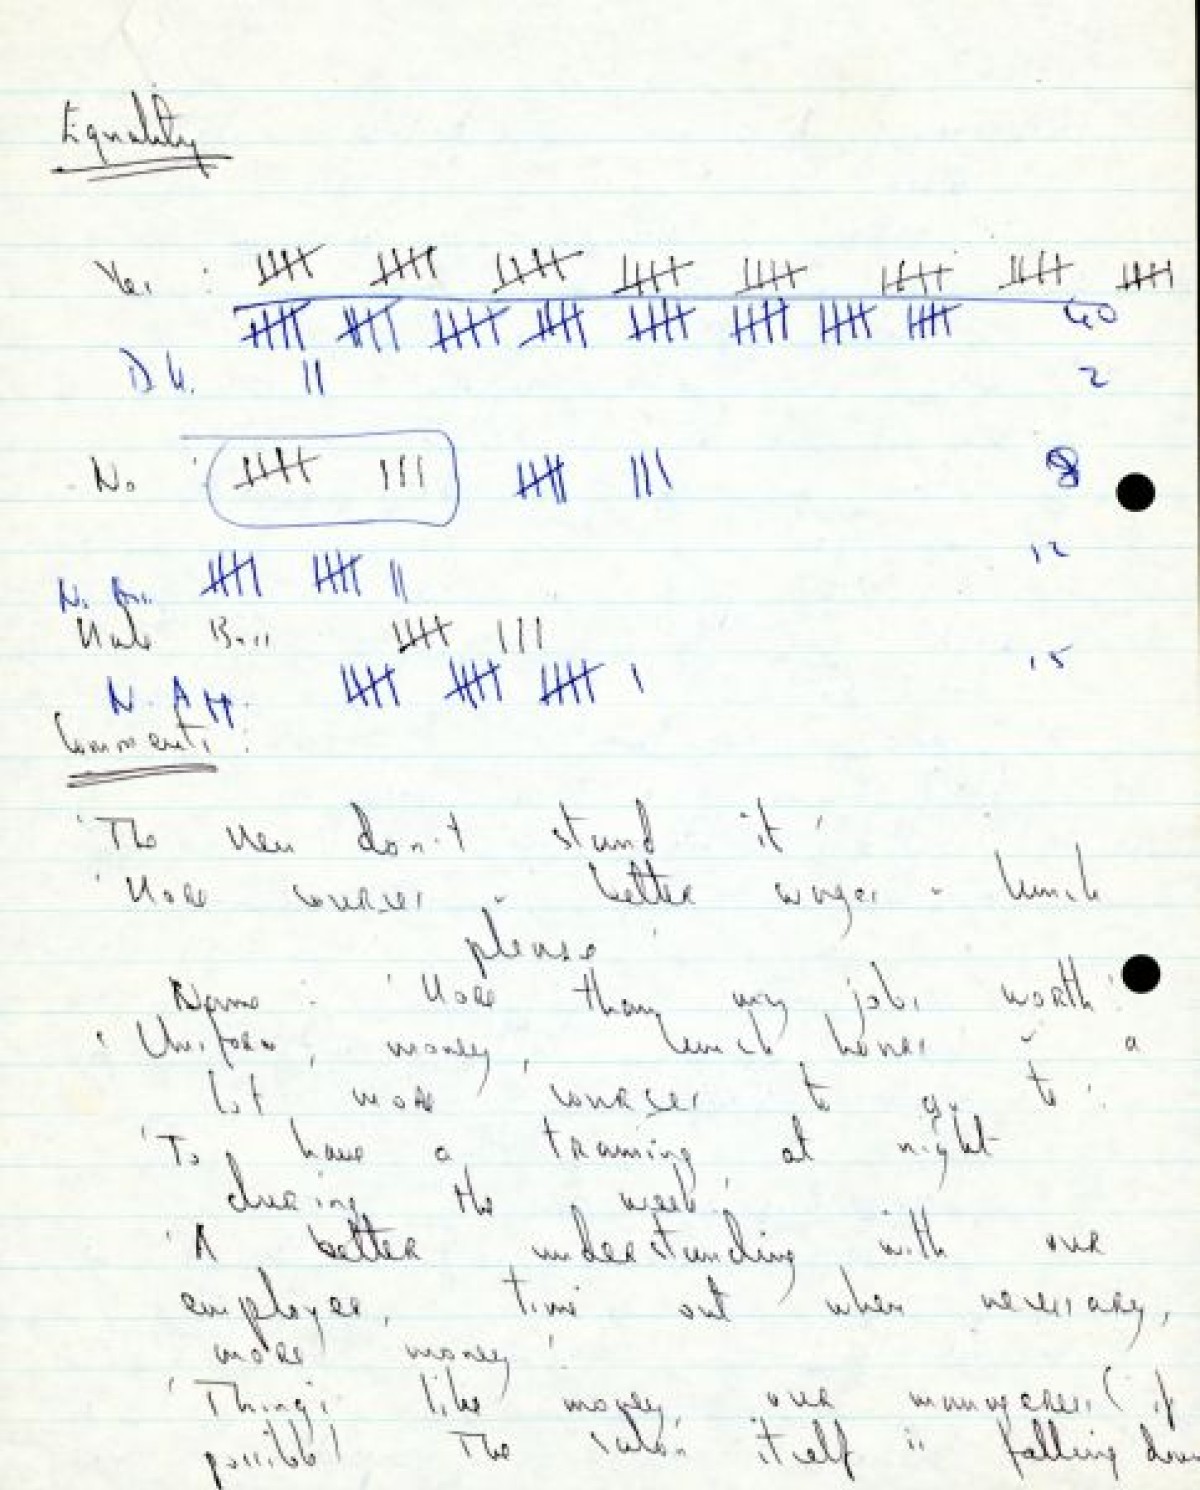 Equality
Yes :
40
D.K. 2
No : 8
N. An. 12
Male Boss
N. App. 15
Comments :
'The men don't stand it'
'More courses - better wages - lunch
please'
Name : 'More than my jobs worth'.
'Uniform, money, lunch hours - a
lot more courses to go to'.
'To have a training at night
during the week'.
'A better understanding with our
employer, time out when necessary,
more money'.
'Things like money, our manageress (if
possible) The salon itself is falling down